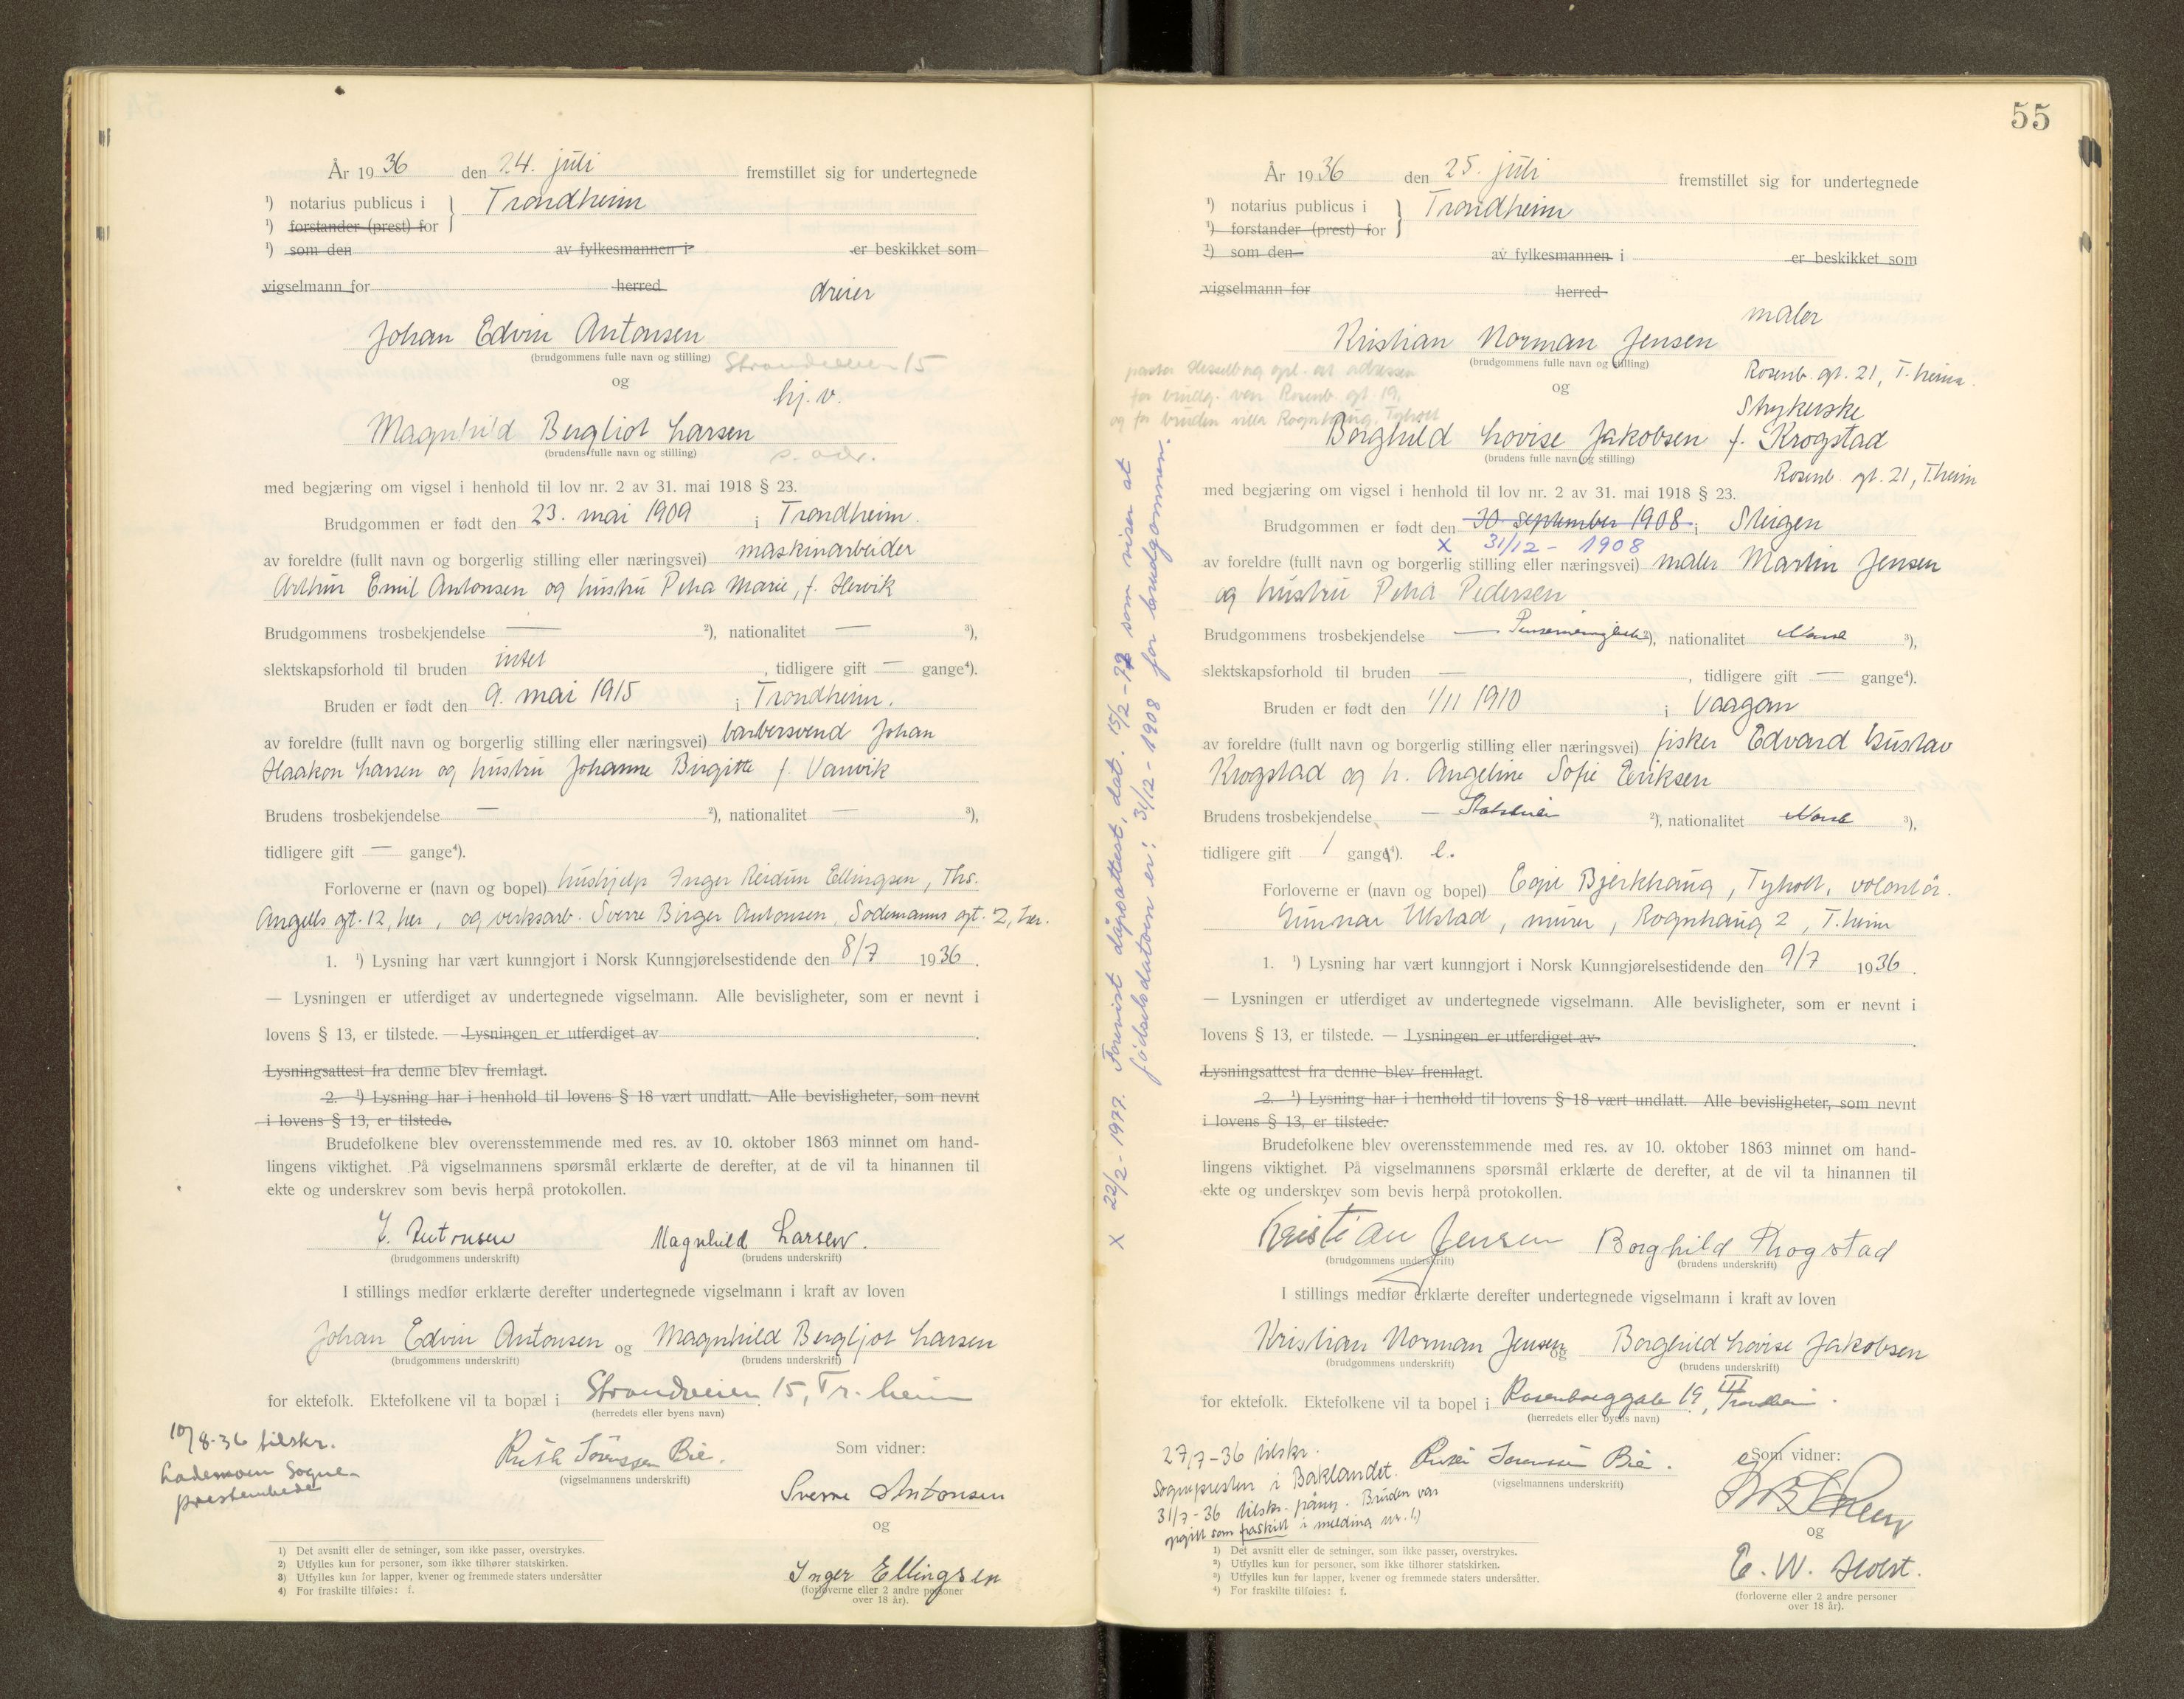 År 1936 den 24. juli fremstillet sig for undertegnede
¹) notarius publicus i } Trondheim
¹) forstander (prest) for
¹) som den av fylkesmannen i er beskikket som
vigselmann for herred
dreier
Johan Edvin Antonsen
(brudgommens fulle navn og stilling) Strandveien 15
og
hj. v.
Magnhild Bergliot Larsen
(brudens fulle navn og stilling) s. adr.
med begjæring om vigsel i henhold til lov nr. 2 av 31. mai 1918 § 23.
Brudgommen er født den 23. mai 1909 i Trondheim.
av foreldre (fullt navn og borgerlig stilling eller næringsvei) maskinarbeider
Arthur Emil Antonsen og hustru Petra Marie, f. Hervik
Brudgommens trosbekjendelse — ²), nationalitet — ³),
slektskapsforhold til bruden intet, tidligere gift — gange⁴).
Bruden er født den 9. mai 1915 i Trondheim.
av foreldre (fullt navn og borgerlig stilling eller næringsvei) barbersvend Johan
Haakon Larsen og hustru Johanne Birgitte f. Vanvik
Brudens trosbekjendelse — ²), nationalitet — ³),
tidligere gift — gange⁴).
Forloverne er (navn og bopel) hushjelp Inger Reidun Ellingsen, Ths.
Angells gt. 12, her, og verksarb. Sverre Birger Antonsen, Sodemanns gt. 2, her.
1. ¹) Lysning har vært kunngjort i Norsk Kunngjørelsestidende den 8/7 1936.
— Lysningen er utferdiget av undertegnede vigselmann. Alle bevisligheter, som er nevnt i
lovens § 13, er tilstede. — Lysningen er utferdiget av .
Lysningsattest fra denne blev fremlagt.
2. ¹) Lysning har i henhold til lovens § 18 vært undlatt. Alle bevisligheter, som nevnt
i lovens § 13, er tilstede.
Brudefolkene blev overensstemmende med res. av 10. oktober 1863 minnet om hand-
lingens viktighet. På vigselmannens spørsmål erklærte de derefter, at de vil ta hinannen til
ekte og underskrev som bevis herpå protokollen.
J. Antonsen Magnhild Larsen.
(brudgommens underskrift) (brudens underskrift)
I stillings medfør erklærte derefter undertegnede vigselmann i kraft av loven
Johan Edvin Antonsen og Magnhild Bergljot Larsen
(brudgommens underskrift) (brudens underskrift)
for ektefolk. Ektefolkene vil ta bopæl i Strandveien 15, Tr. heim
(herredets eller byens navn)
10/8-36 tilskr.
Lademoen Sogne-
prestembede
Ruth Sørenssen Bie.
(vigselmannens underskrift)
Som vidner:
Sverre Antonsen
og
Inger Ellingsen
(forloverne eller 2 andre personer
over 18 år).
1) Det avsnitt eller de setninger, som ikke passer, overstrykes.
2) Utfylles kun for personer, som ikke tilhører statskirken.
3) Utfylles kun for lapper, kvener og fremmede staters undersåtter
4) For fraskilte tilføies: f.
55
År 1936 den 25. juli fremstillet sig for undertegnede
¹) notarius publicus i } Trondheim
¹) forstander (prest) for
¹) som den av fylkesmannen i er beskikket som
vigselmann for herred
maler
Kristian Norman Jensen
(brudgommens fulle navn og stilling)
Rosenb. gt. 21, T.heim.
og
pastor Hesselberg opl. at adressen
for brudg. var Rosenb. gt 19,
og for bruden villa Rognhaug, Tyholt
Strykerske
Borghild Lovise Jakobsen f. Krogstad
(brudens fulle navn og stilling)
Rosenb. gt. 21, T.heim
med begjæring om vigsel i henhold til lov nr. 2 av 31. mai 1918 § 23.
Brudgommen er født den 30 september 1908 i Steigen
x 31/12 - 1908
av foreldre (fullt navn og borgerlig stilling eller næringsvei) maler Martin Jensen
og hustru Petra Pedersen
Brudgommens trosbekjendelse — ²), nationalitet Norsk ³),
slektskapsforhold til bruden —, tidligere gift — gange⁴).
Bruden er født den 1/11 1910 i Vaagan
av foreldre (fullt navn og borgerlig stilling eller næringsvei) fisker Edvard Gustav
Krogstad og h. Angeline Sofie Eriksen
Brudens trosbekjendelse — ²), nationalitet Norsk ³),
tidligere gift 1 gang⁴).
Forloverne er (navn og bopel) Egil Bjerkhaug, Tyholt, volontør.
Gunnar Ulstad, murer, Rognhaug 2, T.heim
1. ¹) Lysning har vært kunngjort i Norsk Kunngjørelsestidende den 9/7 1936.
— Lysningen er utferdiget av undertegnede vigselmann. Alle bevisligheter, som er nevnt i
lovens § 13, er tilstede. — Lysningen er utferdiget av .
Lysningsattest fra denne blev fremlagt.
2. ¹) Lysning har i henhold til lovens § 18 vært undlatt. Alle bevisligheter, som nevnt
i lovens § 13, er tilstede.
Brudefolkene blev overensstemmende med res. av 10. oktober 1863 minnet om hand-
lingens viktighet. På vigselmannens spørsmål erklærte de derefter, at de vil ta hinannen til
ekte og underskrev som bevis herpå protokollen.
x 22/2-1977. Forevist dåpsattest, dat. 15/2-77 som viser at
fødselsdatoen er: 31/12-1908 for brudgommen.
Kristian Jensen Borghild Krogstad
(brudgommens underskrift) (brudens underskrift)
I stillings medfør erklærte derefter undertegnede vigselmann i kraft av loven
Kristian Norman Jensen og Borghild Lovise Jakobsen
(brudgommens underskrift) (brudens underskrift)
for ektefolk. Ektefolkene vil ta bopel i Rosenborggate 19 III, Trondheim.
(herredets eller byens navn)
27/7-36 tilskr.
Sognepresten i Baklandet.
31/7-36 tilskr. påny. Bruden var
opgitt som fraskilt i melding nr. 1)
Ruth Sørenssen Bie.
(vigselmannens underskrift)
Som vidner:
og
E. W. Holst.
(forloverne eller 2 andre personer
over 18 år).
¹) Det avsnitt eller de setninger, som ikke passer, overstrykes.
²) Utfylles kun for personer, som ikke tilhører statskirken.
³) Utfylles kun for lapper, kvener og fremmede staters undersåtter.
⁴) For fraskilte tilføies: f.